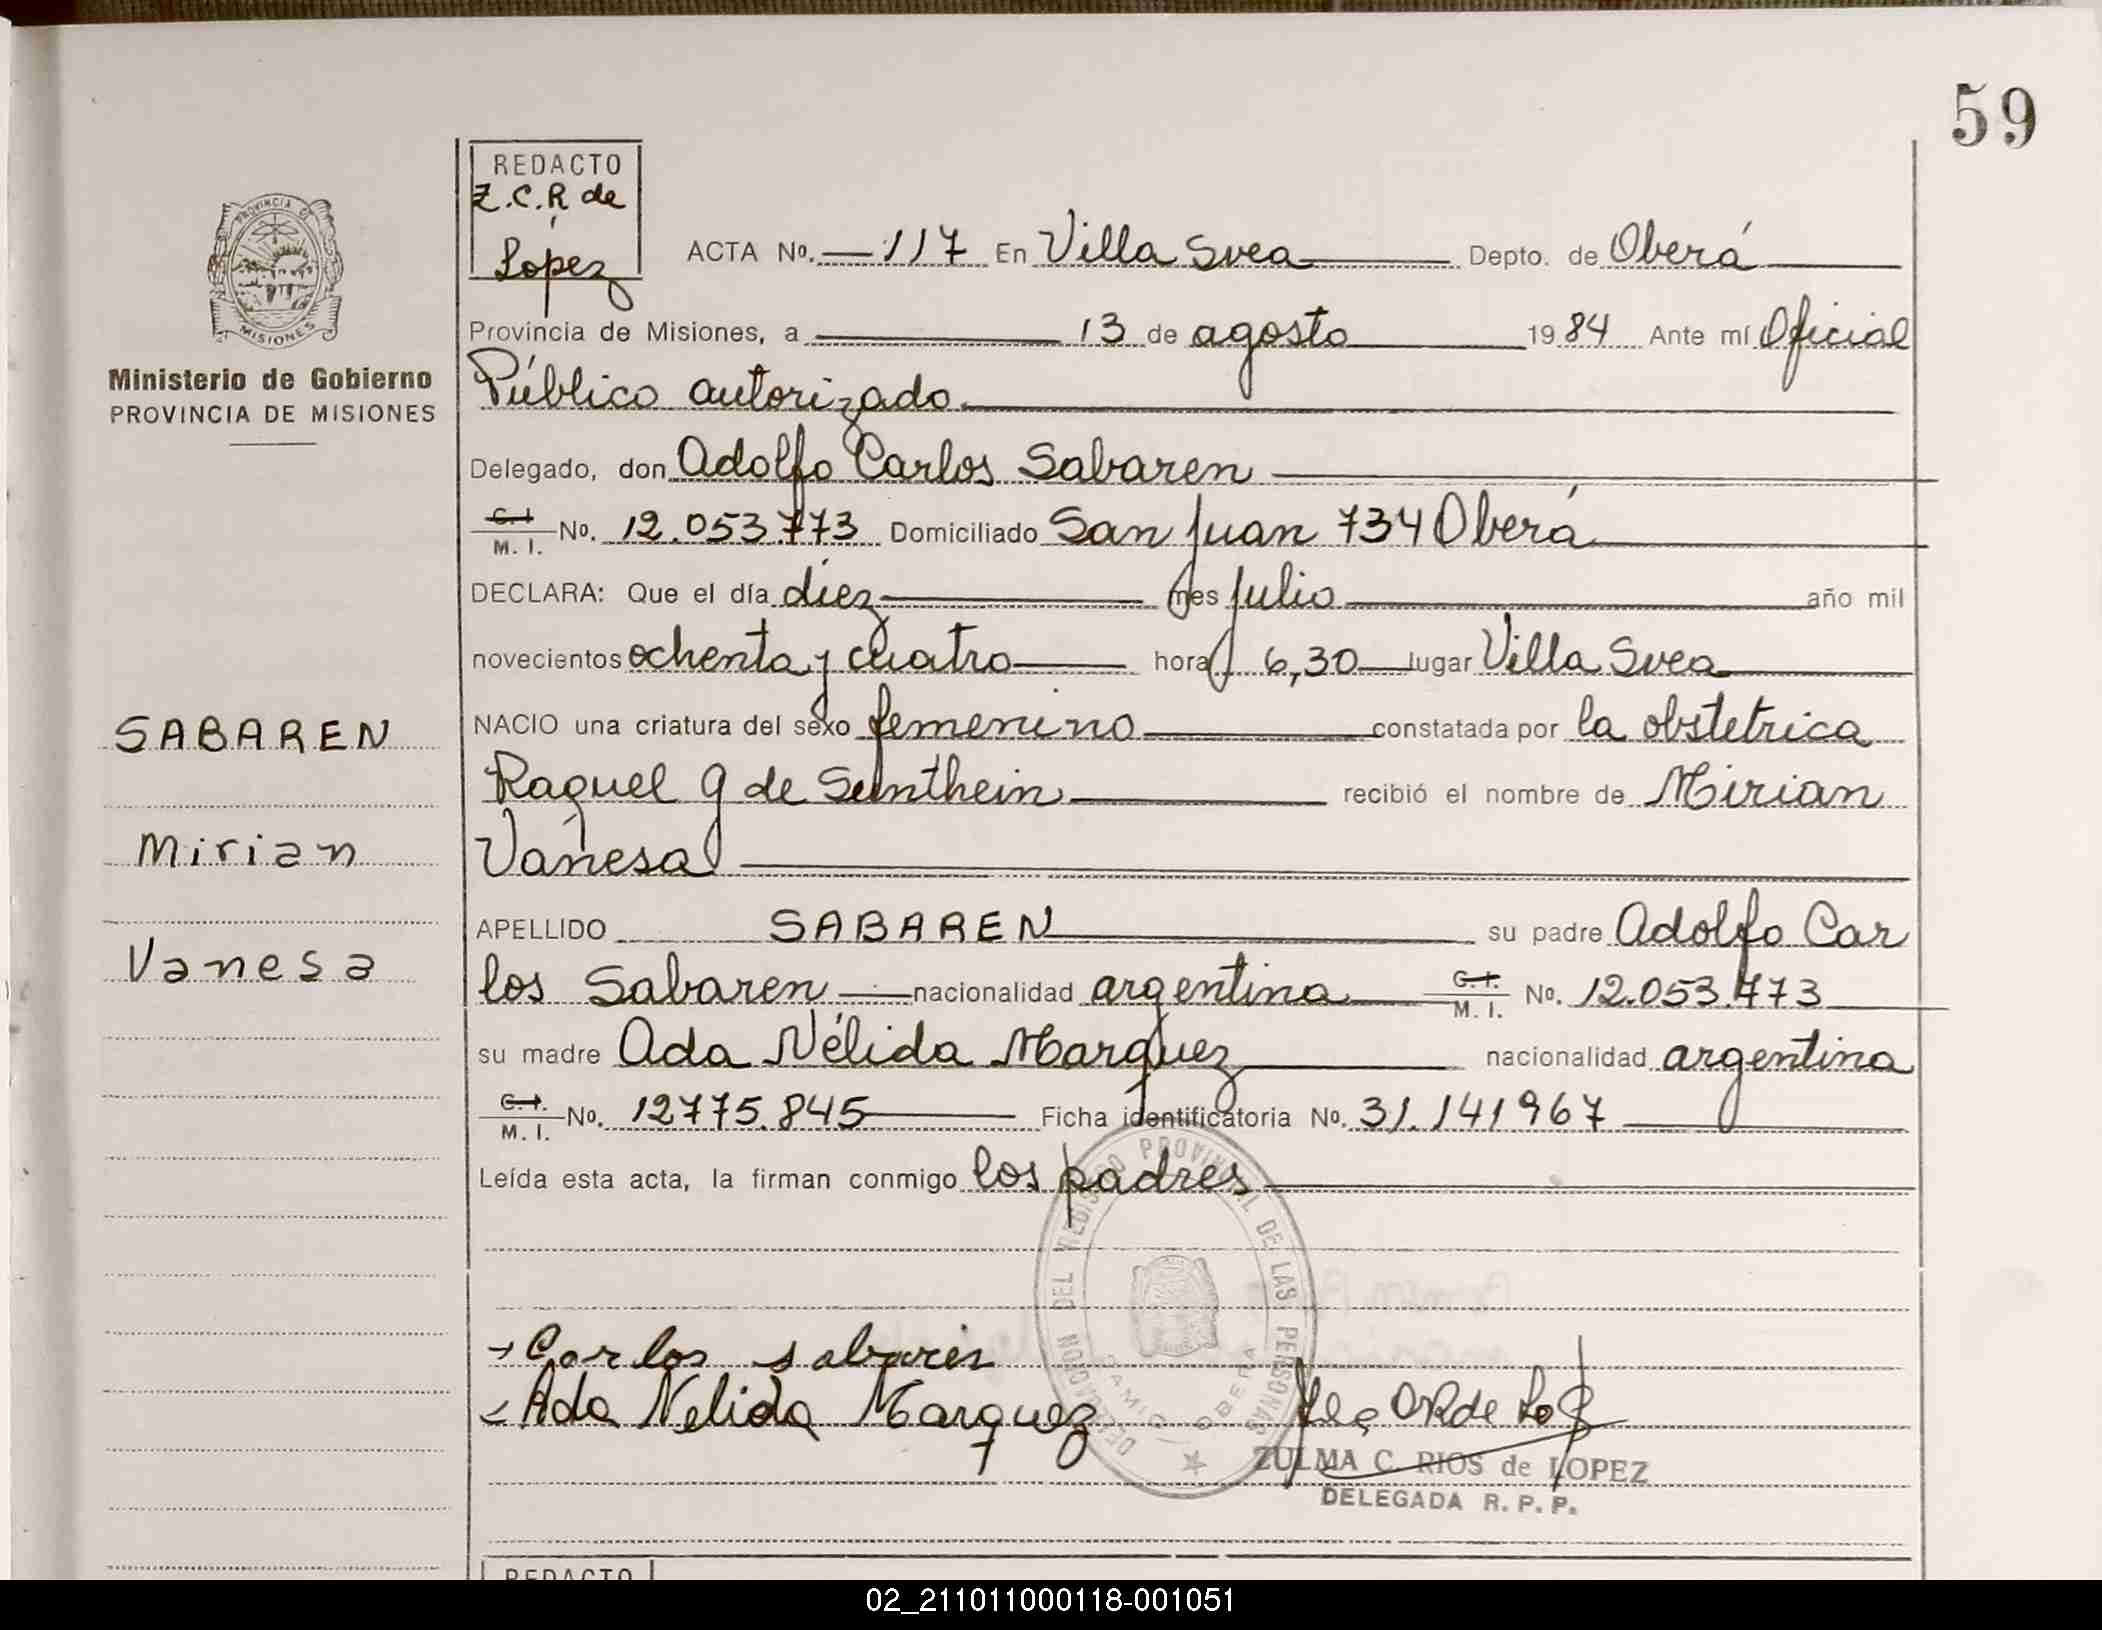 59
REDACTO
Z.C.R de
Lopez
ACTA No. 117 En Villa Svea Depto. de Oberá
Provincia de Misiones, a 13 de agosto 1984 Ante mí Oficial
Público autorizado
Delegado, don Adolfo Carlos Sabaren
C. I. M. I. No. 12.053.773 Domiciliado San Juan 734 Oberá
DECLARA: Que el día diez mes Julio año mil
novecientos ochenta y cuatro hora 6,30 lugar Villa Svea
NACIO una criatura del sexo femenino constatada por la obstetrica
Raquel G de Sunthein recibió el nombre de Mirian
Vanesa
APELLIDO SABAREN su padre Adolfo Car
los Sabaren nacionalidad argentina C. I. M. I. No. 12.053.773
su madre Ada Nélida Marquez nacionalidad argentina
C. I. M. I. No. 12775.845 Ficha identificatoria No. 31.141967
Leída esta acta, la firman conmigo los padres
PROVINCIA DE
MISIONES
Ministerio de Gobierno
PROVINCIA DE MISIONES
SABAREN
Mirian
Vanesa
DELEGACION DEL REGISTRO PROVINCIAL DE LAS PERSONAS
OBERA
Carlos sabaren
Ada Nelida Marquez
ZULMA C. RIOS de LOPEZ
DELEGADA R. P. P.
REDACTO
02_211011000118-001051